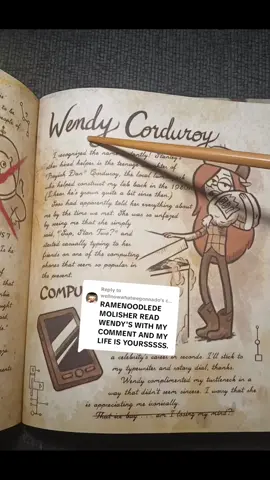 Wendy Corduroy
I recognized the name instantly! Stanley's
other hired helper is the teenage daughter of
"Boyish Dan" Corduroy, the local lumberjack
who helped construct my lab back in the 1980s
(Man, he's grown quite a bit since then.)
Soos had apparently told her everything about
me by the time we met. She was so unfazed
by seeing me that she simply
said, "Sup, Stan Two?" and
started casually typing to her
friends on one of the computing
phones that seem so popular in
the present.
COMPU
Reply to
RAMENOODLEDE
MOLISHER READ
WENDY'S WITH MY
COMMENT AND MY
LIFE IS YOURSSSSS.
a celebrity's career in seconds. I'll stick to
my typewriter and rotary dial, thanks.
Wendy complimented my turtleneck in a
way that didn't seem sincere. I worry that she
is appreciating me ironically.
That ice bag... am I losing my mind?